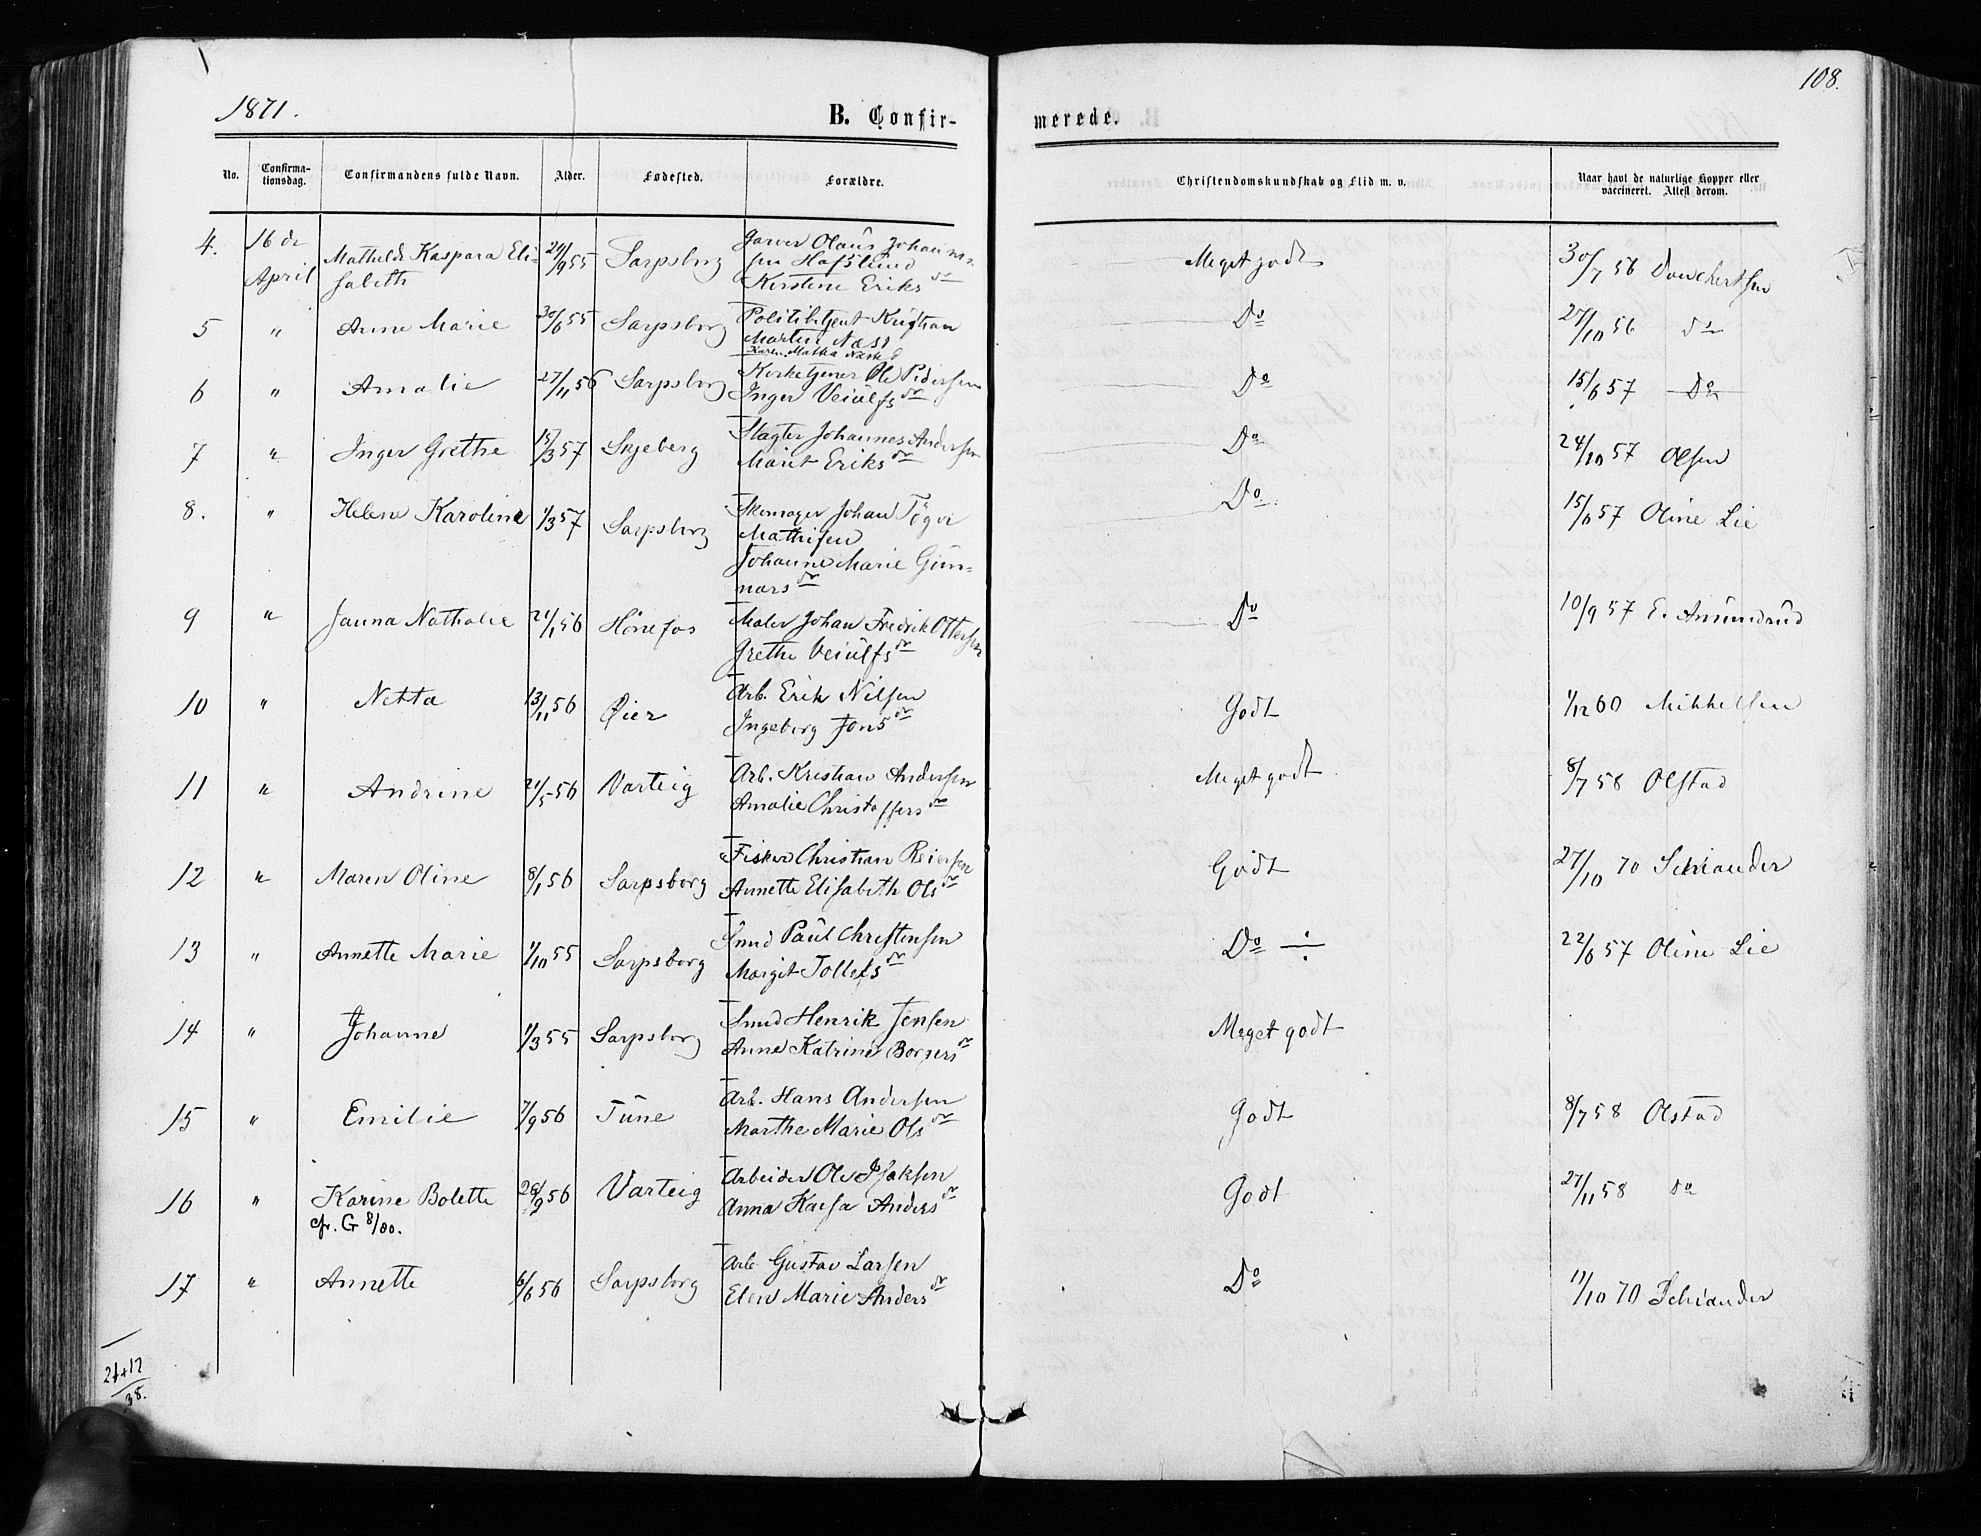 108.
1871.
B. Confir-
merede.
No.
Confirma-
tionsdag.
Confirmandens fulde Navn.
Alder.
Fødested.
Forældre.
Christendomskundskab og Flid m. v.
Naar havt de naturlige Kopper eller
vaccineret. Attest derom.
4. 16de April Mathilde Kaspara Eli-
sabeth 24/9 55 Sarpsborg Garver Olaus Johannes-
sen Hafslund
Kirstine Eriks dr Meget godt 30/7 56
5 " Anne Marie 30/6 55 Sarpsborg Politibetjent Kristian
Martin Næss
Karen Mathea Næss Do 27/10 56 do
6 " Amalie 27/11 56 Sarpsborg Kirketjener Ole Pedersen
Inger Veiulfs dr Do 15/6 57 Do
7 " Inger Grethe 15/3 57 Skjeberg Slagter Johannes Andersen
Marit Eriks dr Do 24/10 57 Olsen
8. " Helene Karoline 1/3 57 Sarpsborg Skomager Johan
Mathisen
Johanne Marie Gun-
nars dr Do. 15/6 57 Oline Lie
9 " Janna Nathalie 21/1 56 Hønefos Maler Johan Fredrik Ottersen
Grethe Veiulfs dr Do 10/9 57 E. Amundrud
10 " Netta 13/11 56 Øier Arb. Erik Nilsen
Ingeborg Jons dr Godt 1/12 60 Mikkelsen
11 " Andrine 21/5 56 Varteig Arb. Kristian Andersen
Amalie Christoffers dr Meget godt 8/7 58 Olstad
12 " Maren Oline 8/1 56 Sarpsborg Fisker Christian Reiersen
Annette Elisabeth Ols dr Godt 27/10 70 Schiander
13 " Annette Marie 1/10 55 Sarpsborg Smed Paul Christensen
Margit Tollefs dr Do ÷ 22/6 57 Oline Lie
14 " Johanne 1/3 55 Sarpsborg Smed Henrik Jensen
Anne Katrine Borgers dr Meget godt
15 " Emilie 7/9 56 Tune Arb. Hans Andersen
Marthe Marie Ols dr Godt 8/7 58 Olstad
16 " Karine Bolette 28/9 56 Varteig Arbeider Ole Isaksen
cfr. G 8/80. Anna Kaisa Anders dr Godt 27/11 58 do
17 " Annette 6/6 56 Sarpsborg Arb. Gustav Larsen
Elen Marie Anders dr Do 11/10 70 Schiander
21+17
38.